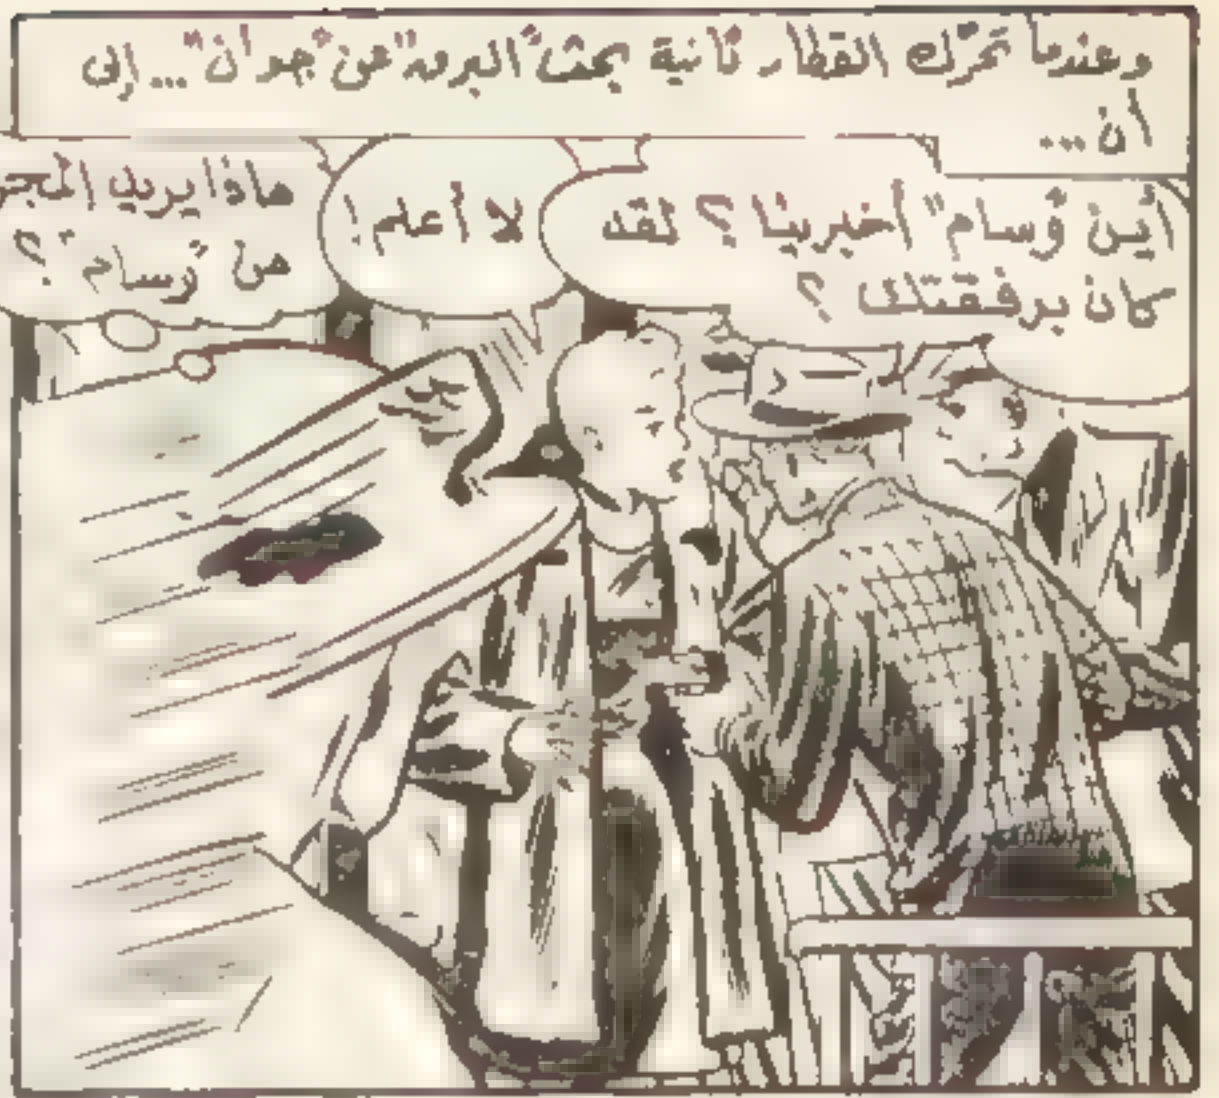 وعندما تحرّك القطار ثانية بحث "البرو" عن "جدان" ... إلى
أن ...
أين "وسام" أخبرينا ؟ لقد
كان برفقتك ؟
لا أعلم !
ماذا يريد المجر
من "وسام" ؟